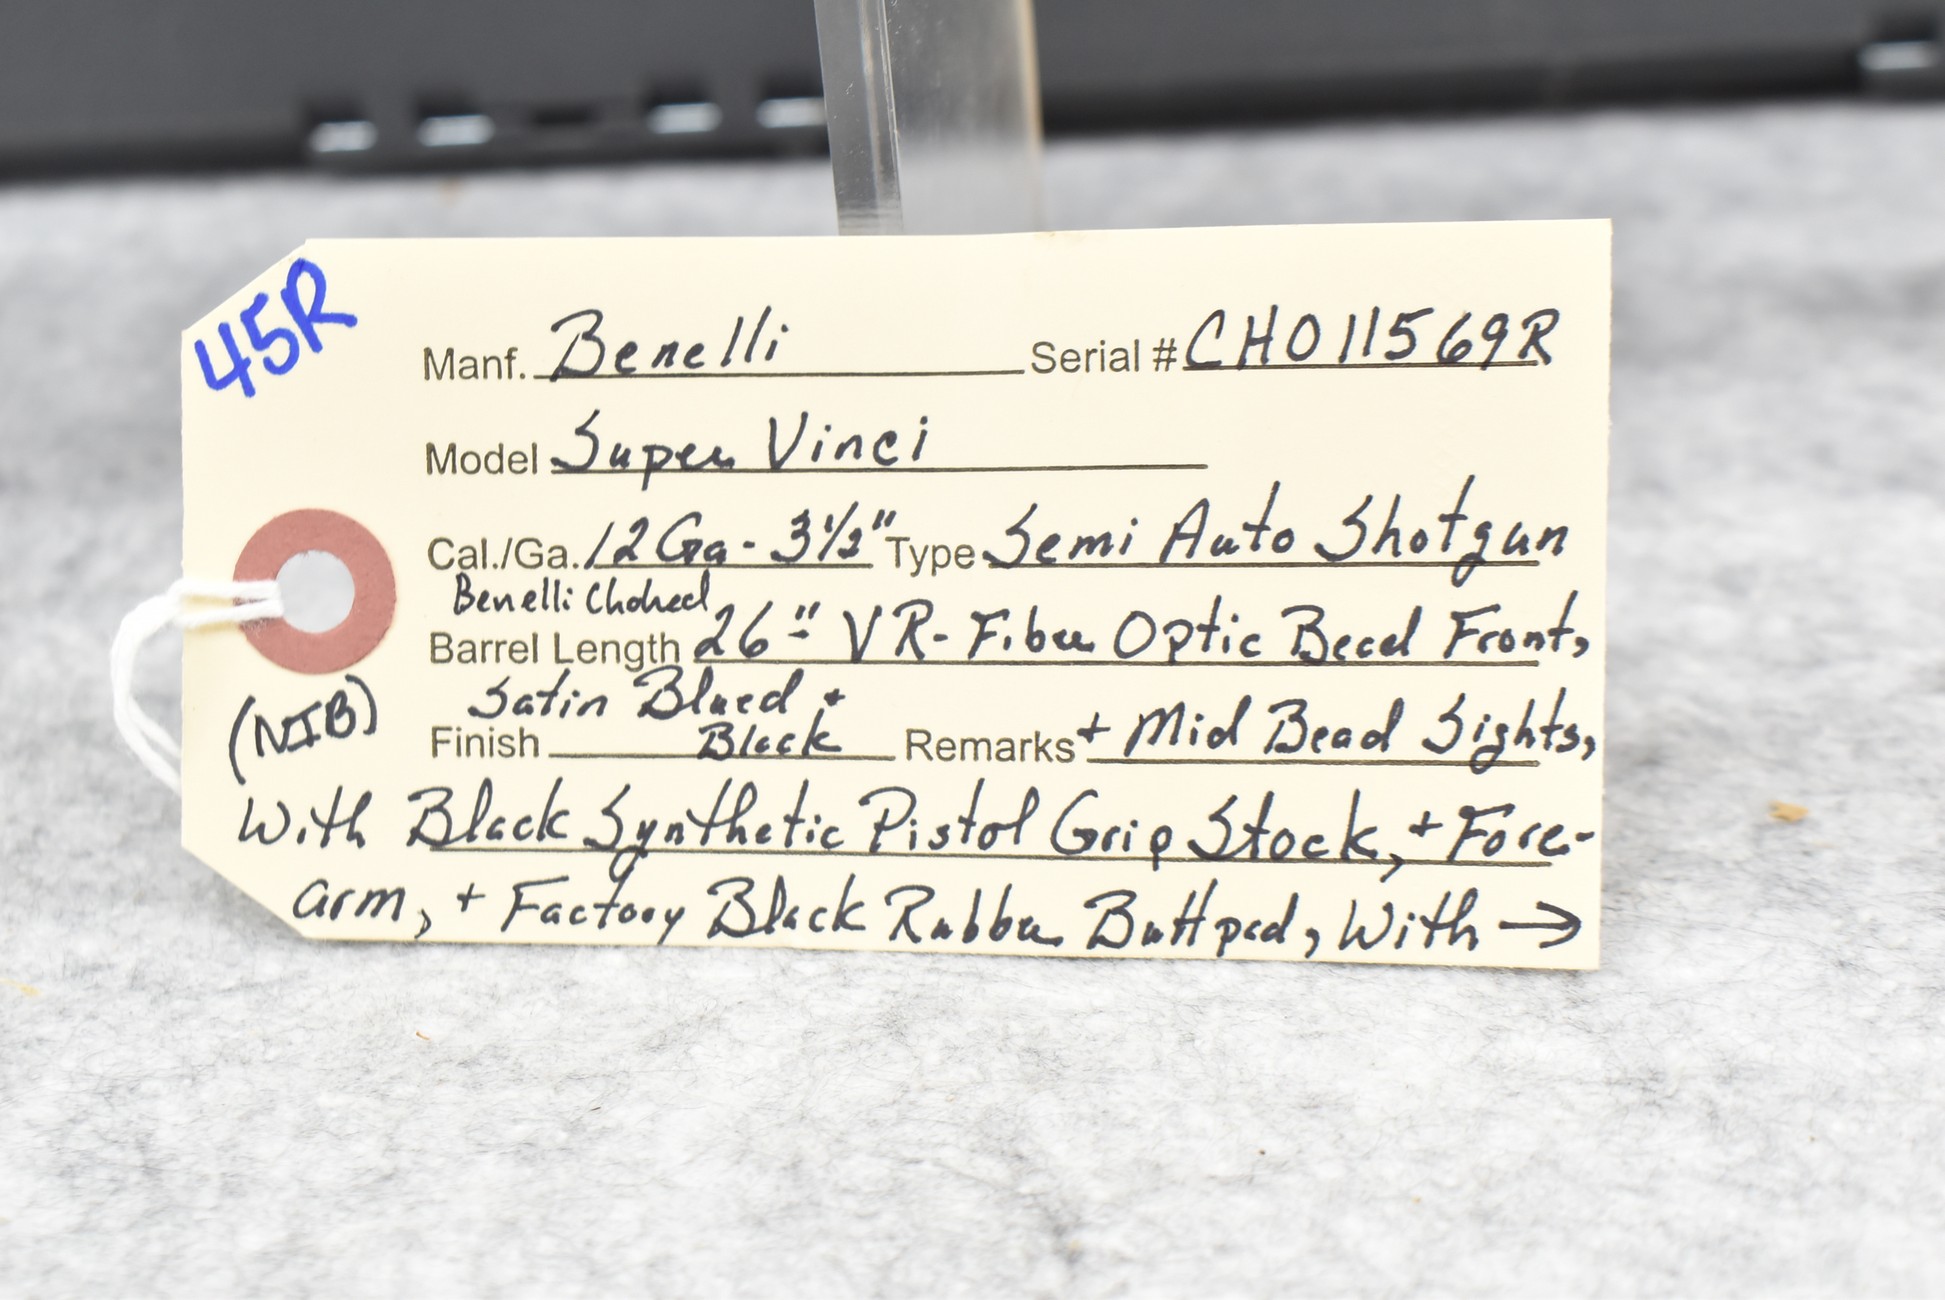 45R
Manf. Benelli Serial # CH011569R
Model Super Vinci
Cal./Ga. 12 Ga - 3 1/2" Type Semi Auto Shotgun
Benelli Choked
Barrel Length 26" VR - Fiber Optic Bead Front,
Satin Blued +
(NIB) Finish Black Remarks + Mid Bead Sights,
With Black Synthetic Pistol Grip Stock, + Fore-
arm, + Factory Black Rubber Buttpad, With →